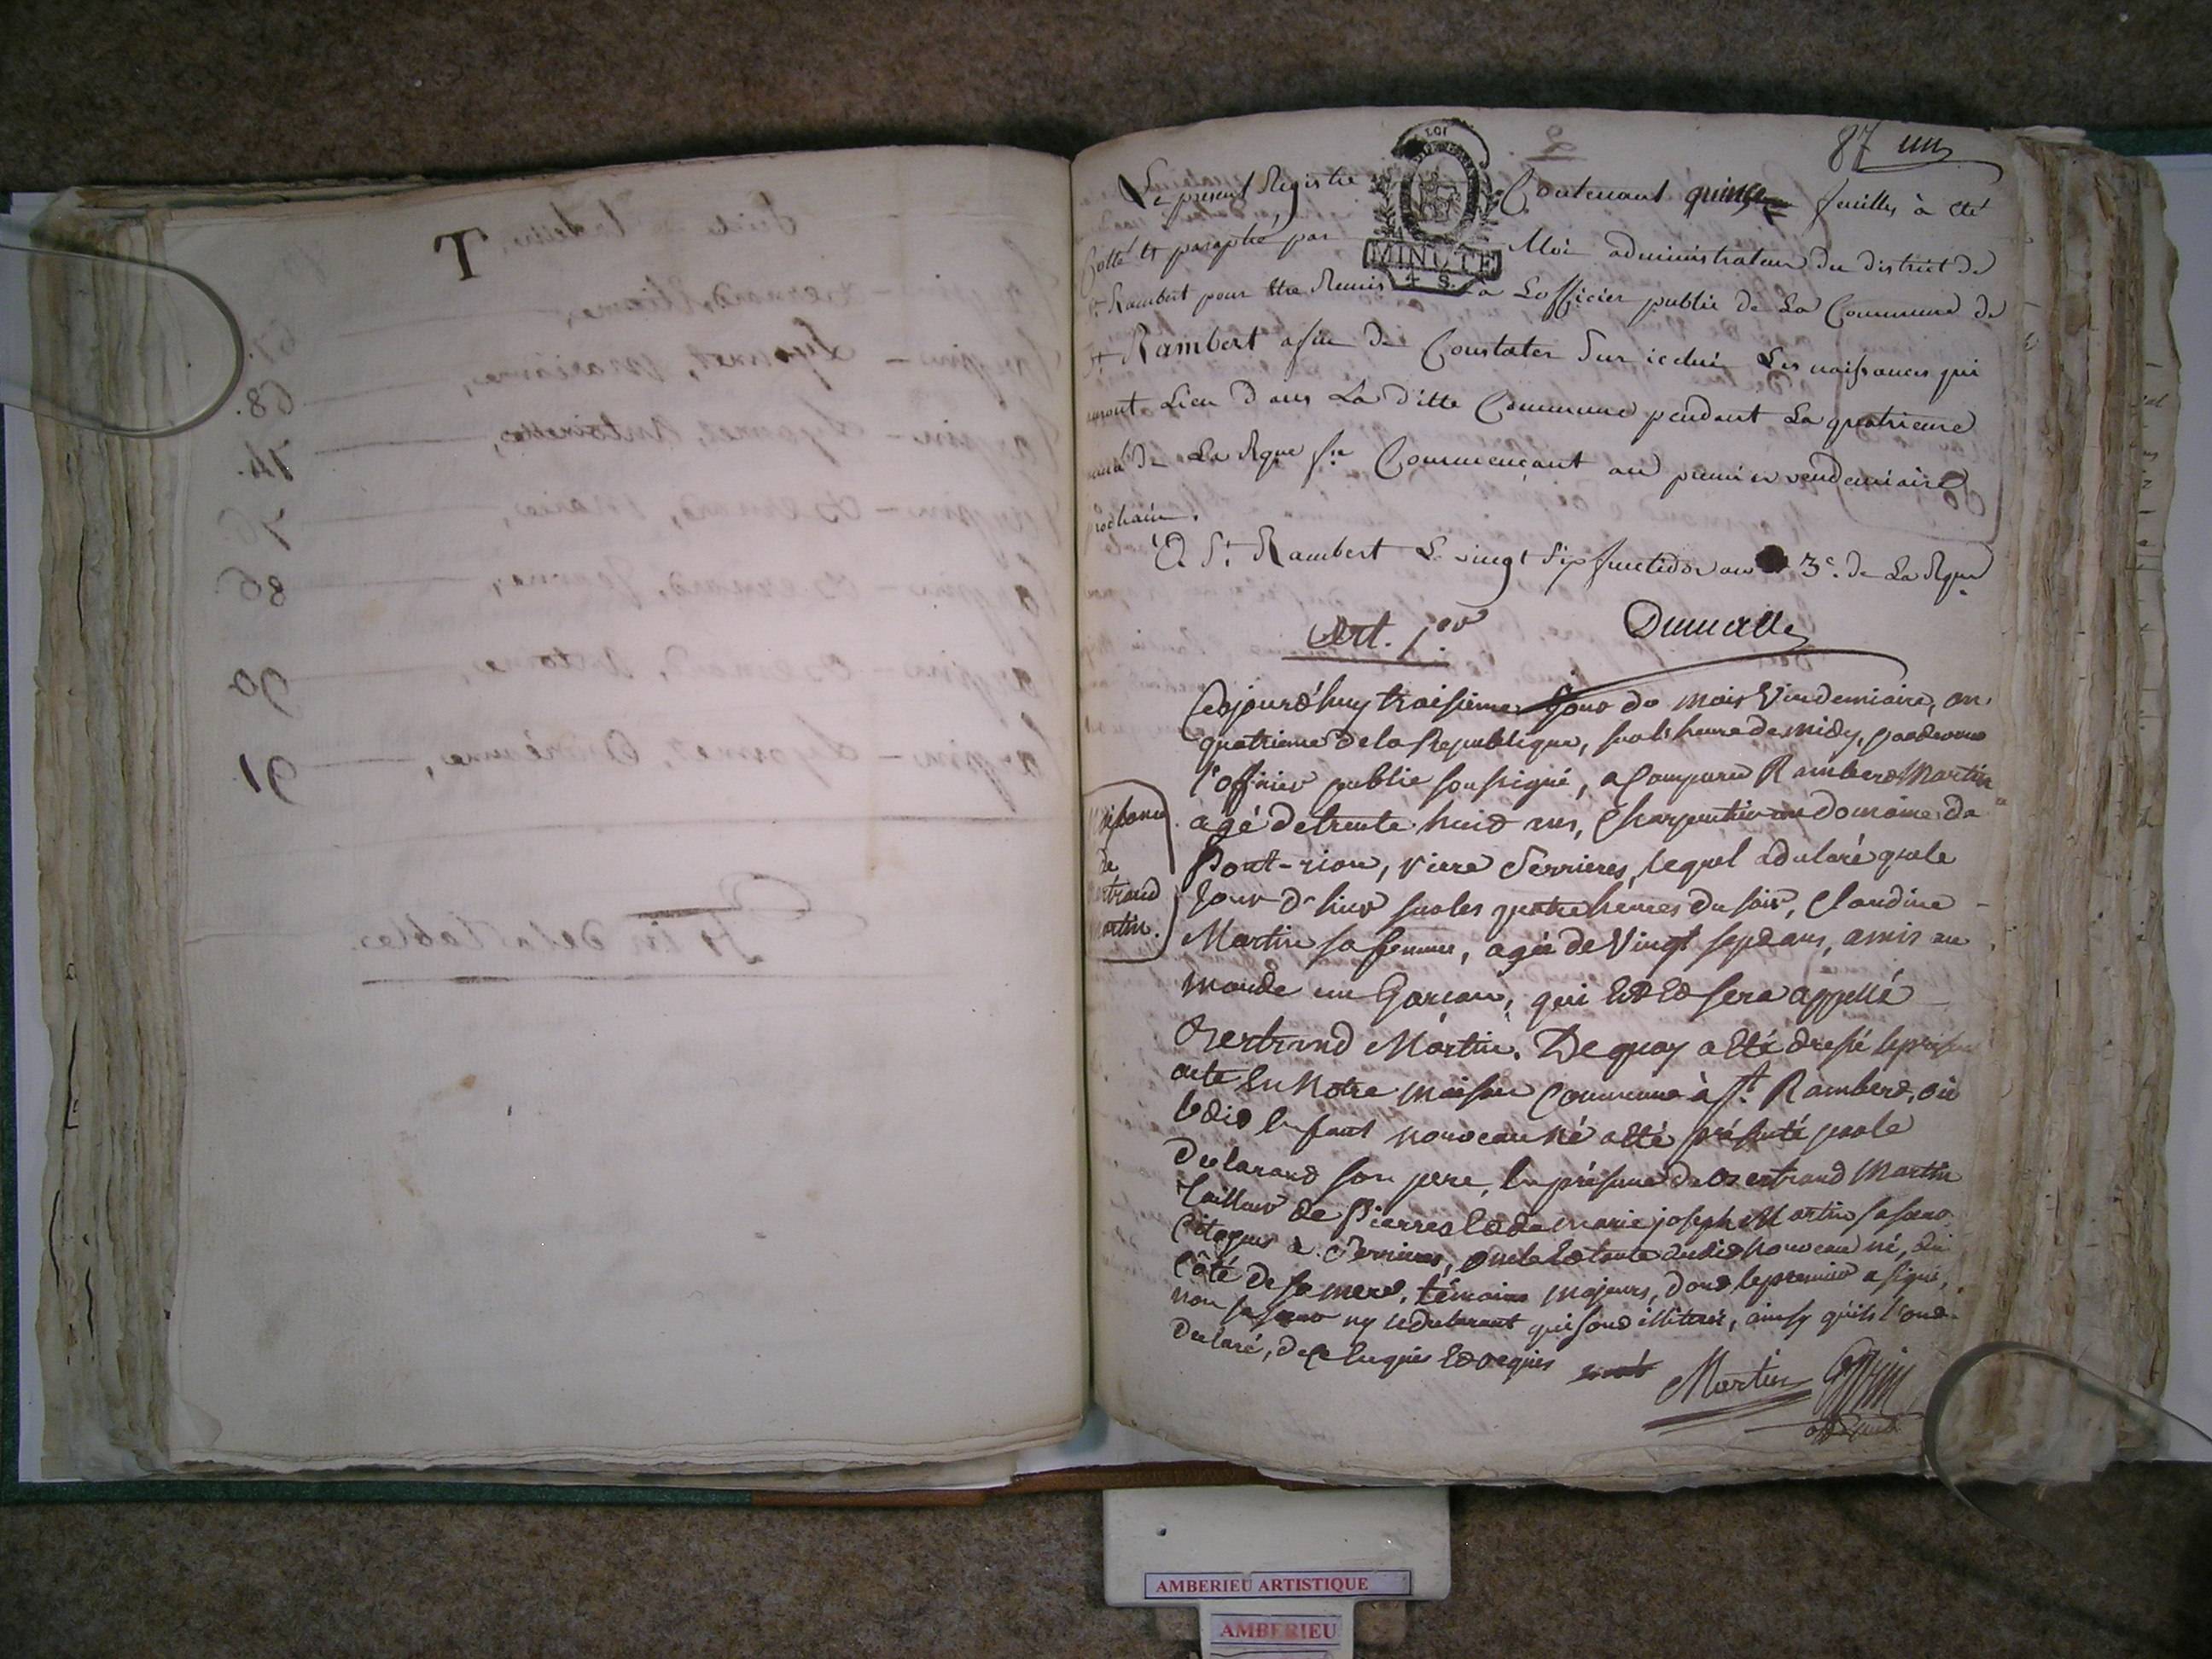 T
87 un
LOI
MINUTE
4 S.
Le present Registre Contenant quinze feuilles à été
Cotté et paraphé par Moi administrateur du district de
St Rambert pour être Remis a Lofficier public de La Commune de
St Rambert afin de Constater Sur icelui Les naissances qui
auront Lieu dans La ditte Commune pendant La quatrieme
année de La Rque fse Commençant au premier vendemiaire
prochain.
A St Rambert Le vingt six fructidor an 3e. de La Rque
Art. 1er
Cejourd'huy troisieme jour du mois Vendemiaire, an
quatrieme de la Republique, sur l'heure de midy, pardevant
l'officier public soussigné, a Comparu Rambert Martin
agé de trente huit ans, Charpentier au domaine de
Pont-rion, viere Serrieres, lequel a declaré que le
Jour d'hier sur les quatre heures du soir, Claudine
Martin sa femme, agée de Vingt sept ans, a mis au
monde un Garcon, qui Est Et sera appellé
Bertrand Martin. De quoy a Eté dressé le present
acte En Notre maison Commune à St. Rambert, où
ledit Enfant nouveau né a Eté présenté par le
Declarant son pere, En présence de Bertrand Martin
tailleur de Pierres Et de marie joseph Martin sa soeur
Citoyens à Serrieres, oncle Et tante dudit nouveau né, du
Côté de sa mere, témoins majeurs, dont le premier a signé,
non sa soeur ny le declarant qui sont illiterés, ainsy qu'ils l'ont
declaré, de ce Enquis Et requis
Naissance
de
Bertrand
Martin.
Martin
AMBERIEU ARTISTIQUE
AMBERIEU